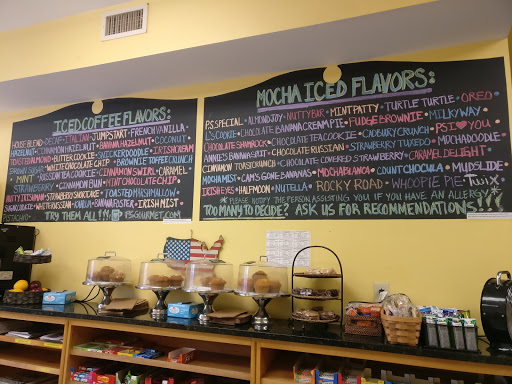 ICED COFFEE FLAVORS:
HOUSE BLEND • DECAF • ITALIAN • JUMPSTART • FRENCH VANILLA
HAZELNUT • CINNAMON HAZELNUT • BANANA HAZELNUT • COCONUT
TOASTED ALMOND • BUTTER COOKIE • SNICKERDOODLE • IRISH CREAM
• WHITE CHOCOLATE CHIP • BROWNIE TOFFEE CRUNCH
CINNAMON SWIRL • CARAMEL
MINT • CINNAMON BUN • MINT CHOCOLATE CHIP
STRAWBERRY
NUTTY IRISHMAN • TOASTED MARSHMALLOW
SUGAR COOKIE • WHITE RUSSIAN • KAHLUA • BANANA FOSTER • IRISH MIST
PISTACHIO TRY THEM ALL!!! PSGOURMET.COM
MOCHA ICED FLAVORS:
PS SPECIAL • ALMOND JOY • NUTTY BAR • MINT PATTY • TURTLE TURTLE • OREO
L'S COOKIE • CHOCOLATE BANANA CREAM PIE • FUDGE BROWNIE • MILKY WAY
CHOCOLATE SHAMROCK • CHOCOLATE TEA COOKIE • CADBURY CRUNCH • PS I ♥ YOU
ANNIE'S BANANA FRUIT • CHOCOLATE RUSSIAN • STRAWBERRY TUXEDO • MOCHADOODLE
CINNAMON • CHOCOLATE COVERED STRAWBERRY • CARAMEL DELIGHT
MOCHAMIST • CAM'S GONE BANANAS • MOCHABLANCA • COUNT CHOCULA • MUDSLIDE
IRISH EYES • HALFMOON • NUTELLA • ROCKY ROAD • WHOOPIE PIE • TWIX
* PLEASE NOTIFY THE PERSON ASSISTING YOU IF YOU HAVE AN ALLERGY
TOO MANY TO DECIDE? ASK US FOR RECOMMENDATIONS!!!